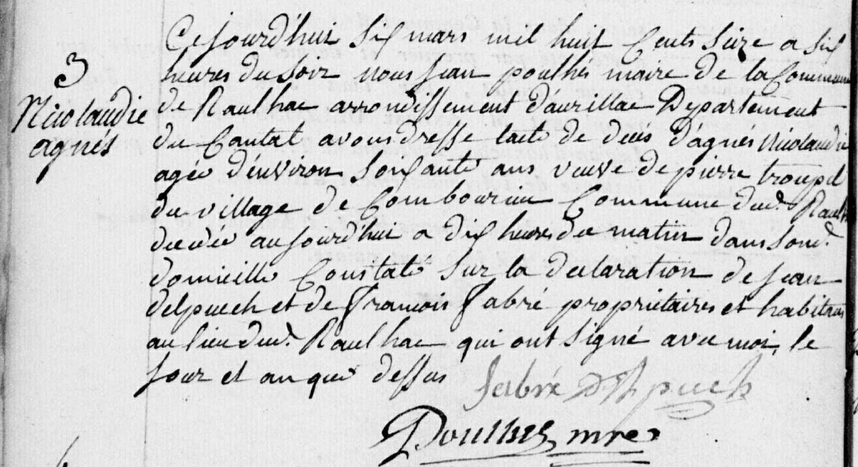 3
Nicolaudie
agnés
Cejourd'huit six mars mil huit Cents Seize a six
heures du Soir nous jean poulhès maire de la Commune
de Raulhac arrondissement d'aurillac Departement
du Cantal avons dresse lacte de décès d'agnés Nicolaudie
agée d'énviron Soixante ans veuve de pierre troupel
du village de Combourieu Commune dud. Raulh
décedée aujourd'hui a dix heures du matin dans sond.
domicille Constaté Sur la declaration de jean
delpuech et de francois fabré propriétaires et habitans
au lieu dud. Raulhac qui ont Signé avec moi, le
jour et an que dessus
fabré Delpuech
Poulhès mre